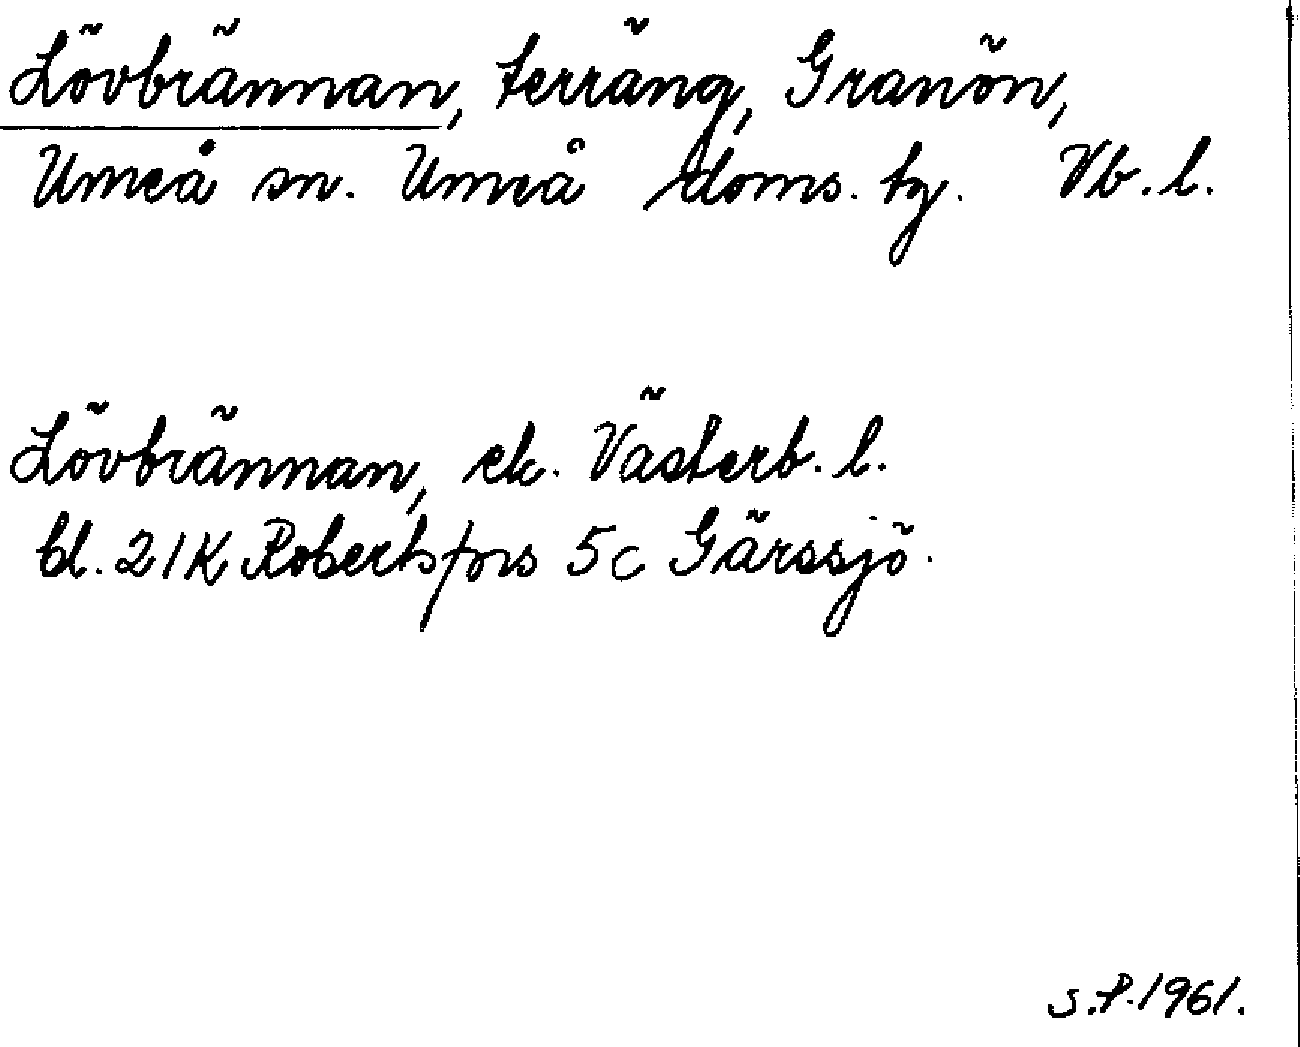 Lövbrännan, terräng, Granön,
Umeå sn. Umeå doms. tg. Vb. l.
Lövbrännan, ek. Västerb. l.
bl. 21K Robertsfors 5c Gärssjö.
S.P. 1961.